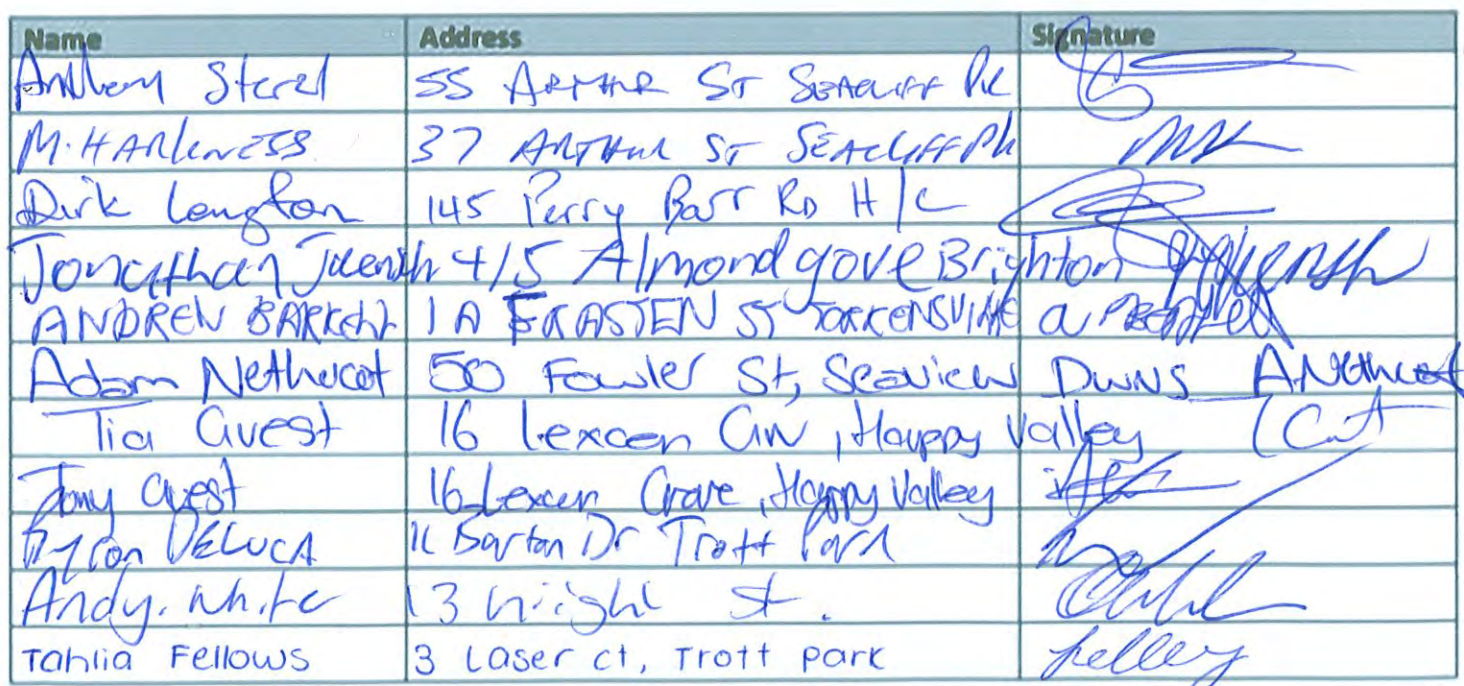 Name Address Signature
Anthony 55 ARTHUR ST SEACLIFF PK
M. HARKNESS 37 ARTHUR ST SEACLIFF PK
Dirk Langton 145 Perry Barr RD H/C
Jonathan 4/5 Almond gove Brighton
ANDREW 1A ST
Adam Nethercot 50 Fowler St, Seaview Downs ANethercot
Tia Guest 16 Lexcen Gw, Happy Valley
Tony Guest 16 Lexcen Grove, Happy Valley
Byron DELUCA 11 Barton Dr Trott Park
Andy. White 13 Wright St.
Tahlia Fellows 3 Laser ct, Trott park